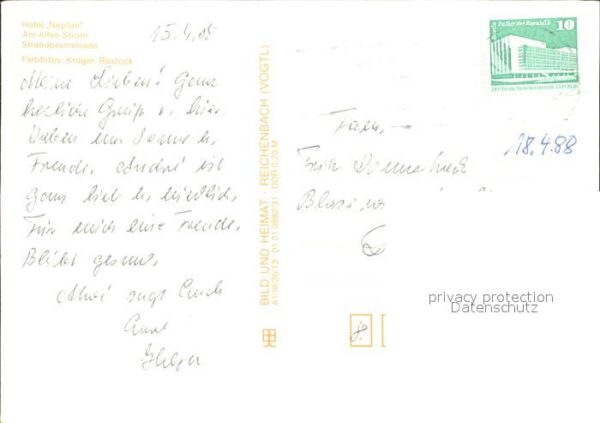 Hotel „Neptun"
Am Alten Strom
Strandpromenade
Farbfotos: Krüger, Rostock
15.4.88
Meine Lieben! Ganz
herzliche Grüße v. hier
Haben nur Sonne u.
Freude. André ist
ganz lieb u. niedlich,
Für mich eine Freude.
Bleibt gesund,
Ahoi sagt Euch
BILD UND HEIMAT · REICHENBACH (VOGTL)
A1 1626/13 DDR 0,20 M
Palast der Republik
10
DEUTSCHE DEMOKRATISCHE REPUBLIK
Fam.
18.4.88
6
privacy protection
Datenschutz